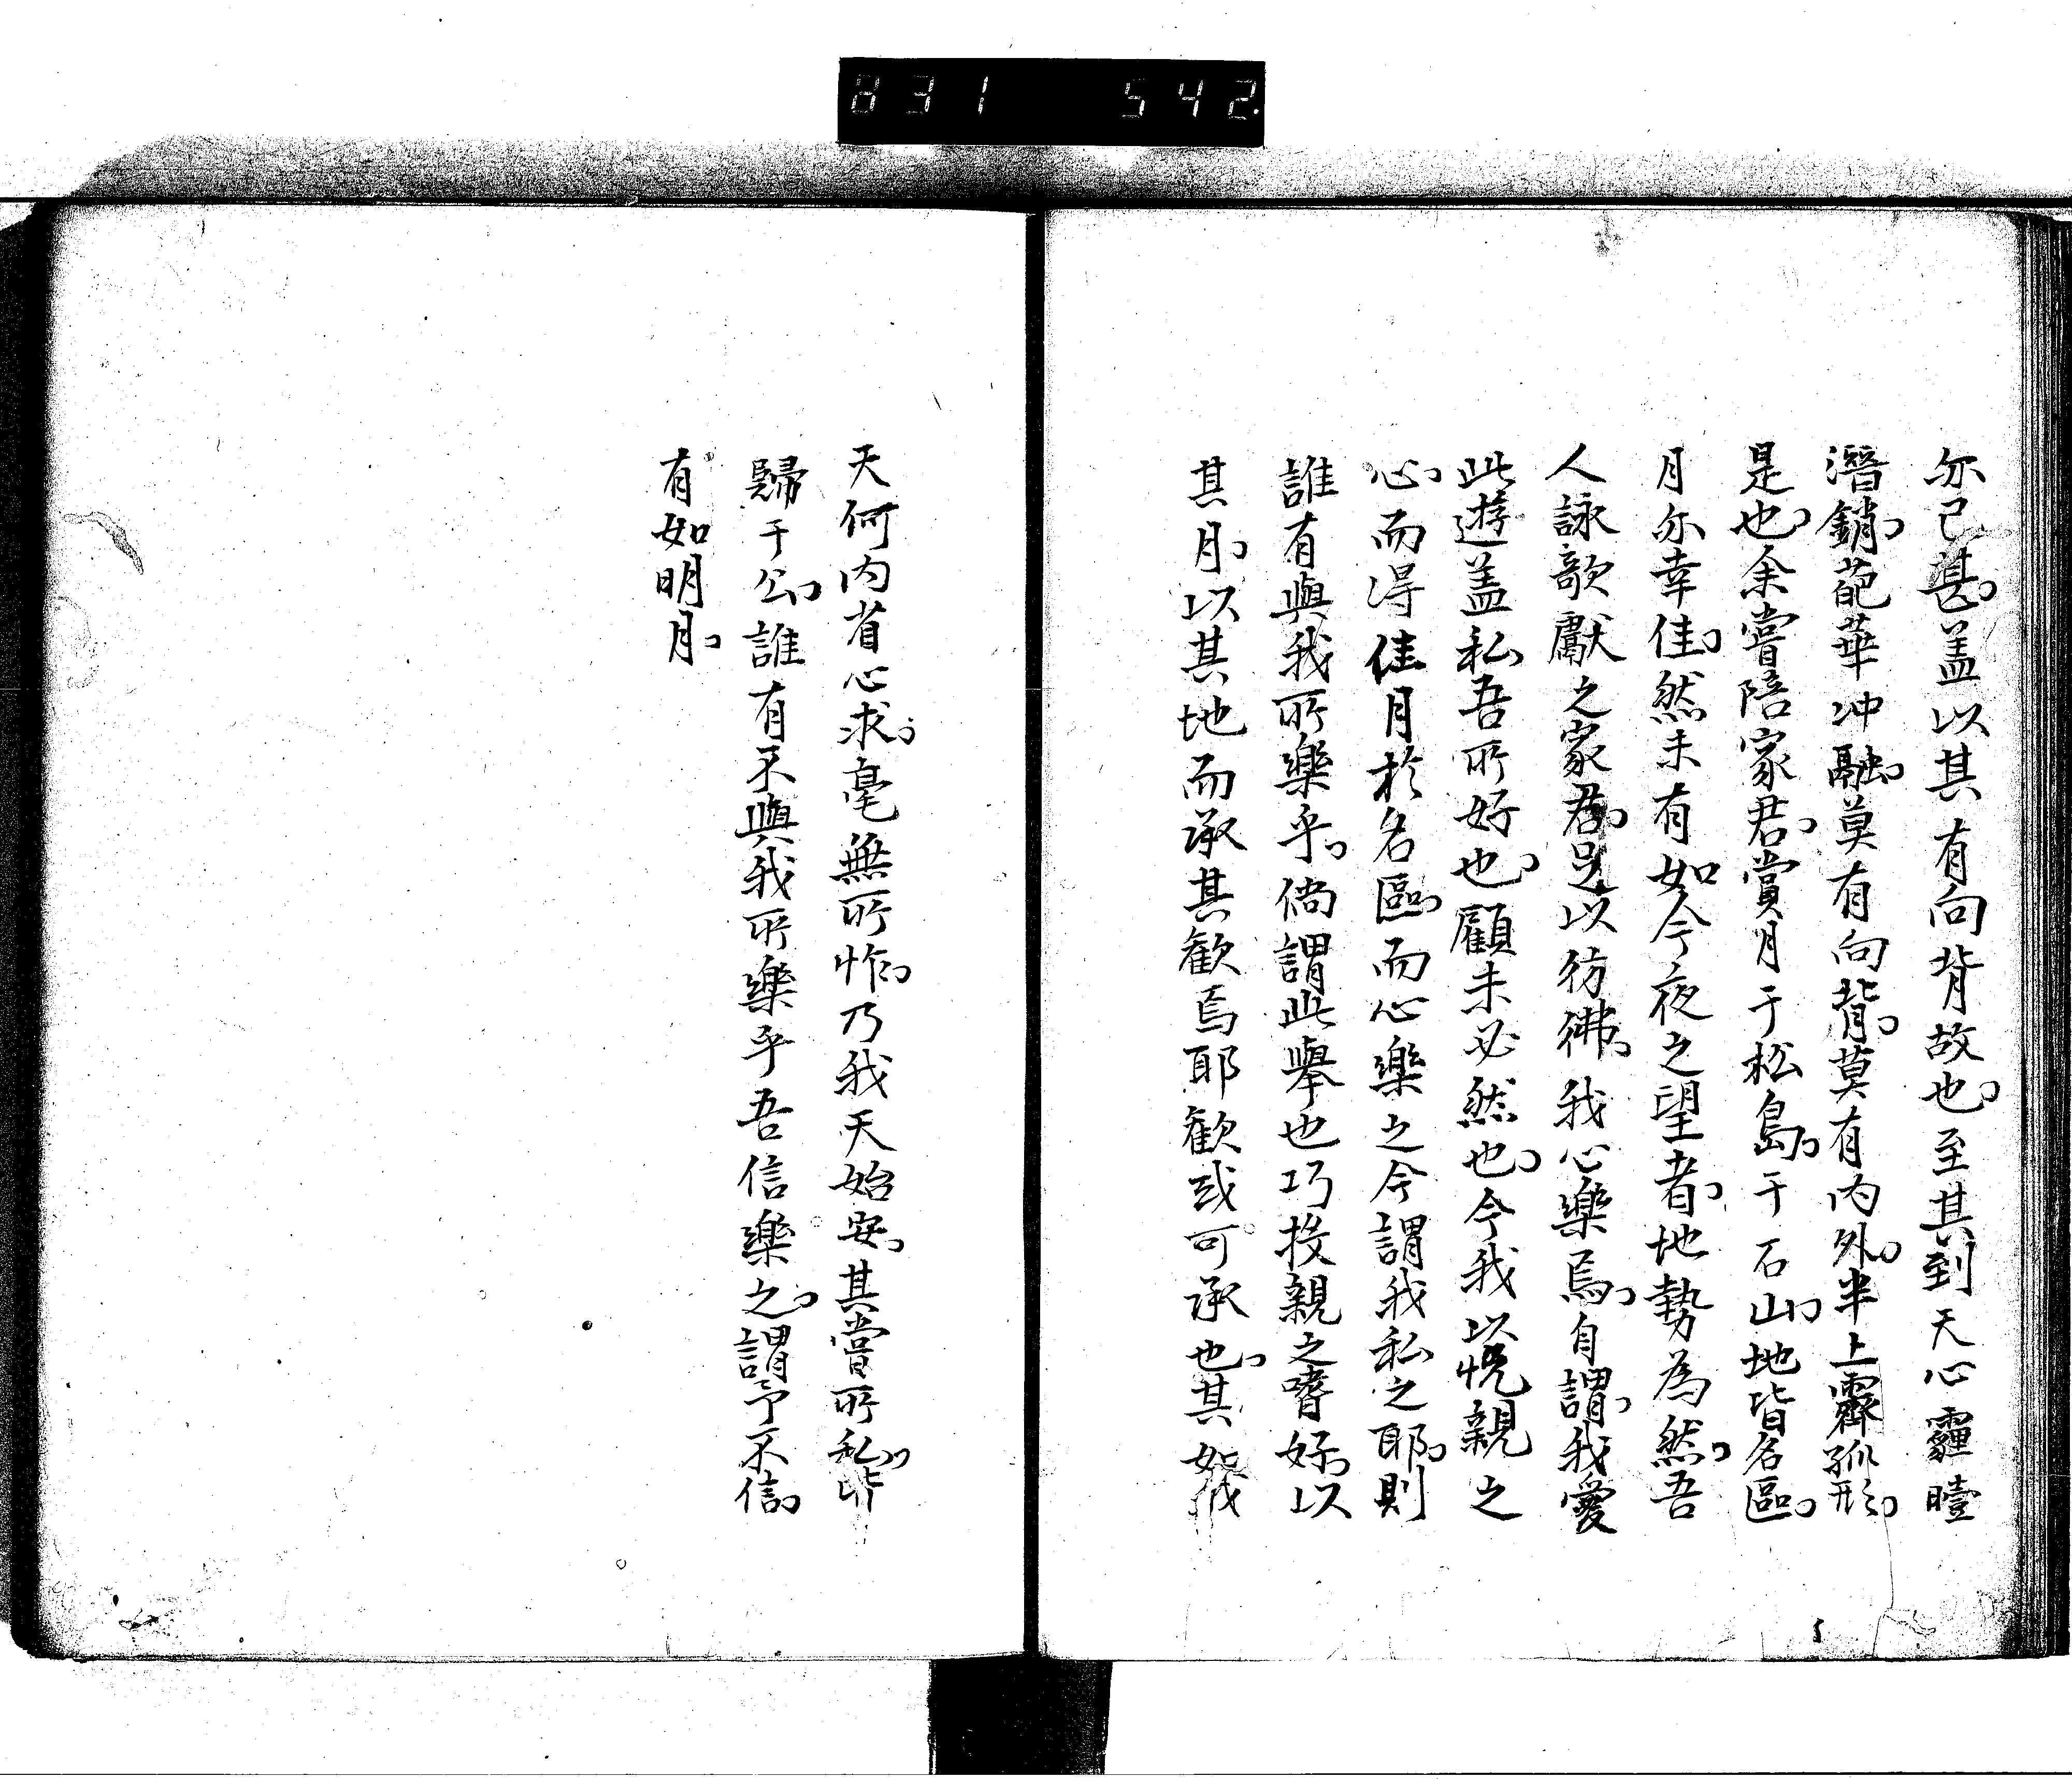 831 542
尓已甚盖以其有向背故也至其到天心霾曀
潛銷葩華冲融莫有向背莫有内外半上霽孤形
是也余嘗陪家君賞月于松島于石山地皆名區
月尓幸佳然未有如今夜之望者地勢為然吾
人詠歌獻之家君足以彷彿我心樂焉自謂我愛
此遊盖私吾所好也顧未必然也今我以悦親之
心而得佳月於名區而心樂之今謂我私之耶則
誰有與我所樂乎倘謂此舉也巧投親之嗜好以
其月以其地而承其歓焉耶歓或可承也其如我
天何内省心求毫無所怍乃我天始安其嘗所私皆
歸于公誰有不與我所樂乎吾信樂之謂予不信
有如明月